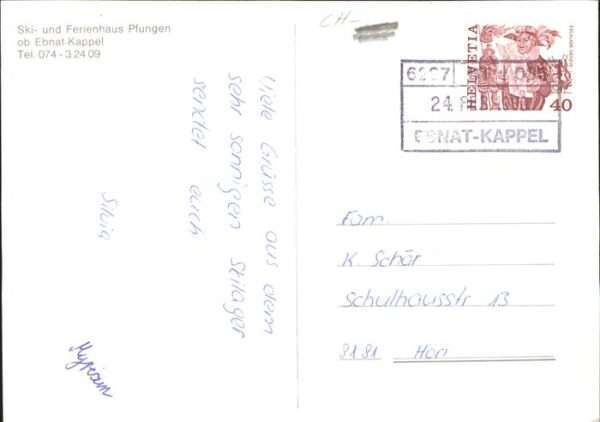 Ski- und Ferienhaus Pfungen
ob Ebnat-Kappel
Tel. 074 - 3 24 09
CH-
HELVETIA
40
24.
EBNAT-KAPPEL
Viele Grüsse aus dem
sehr sonnigen Skilager
sendet euch
Silvia
Myriam
Fam.
K. Schär
Schulhausstr 13
8181 Höri